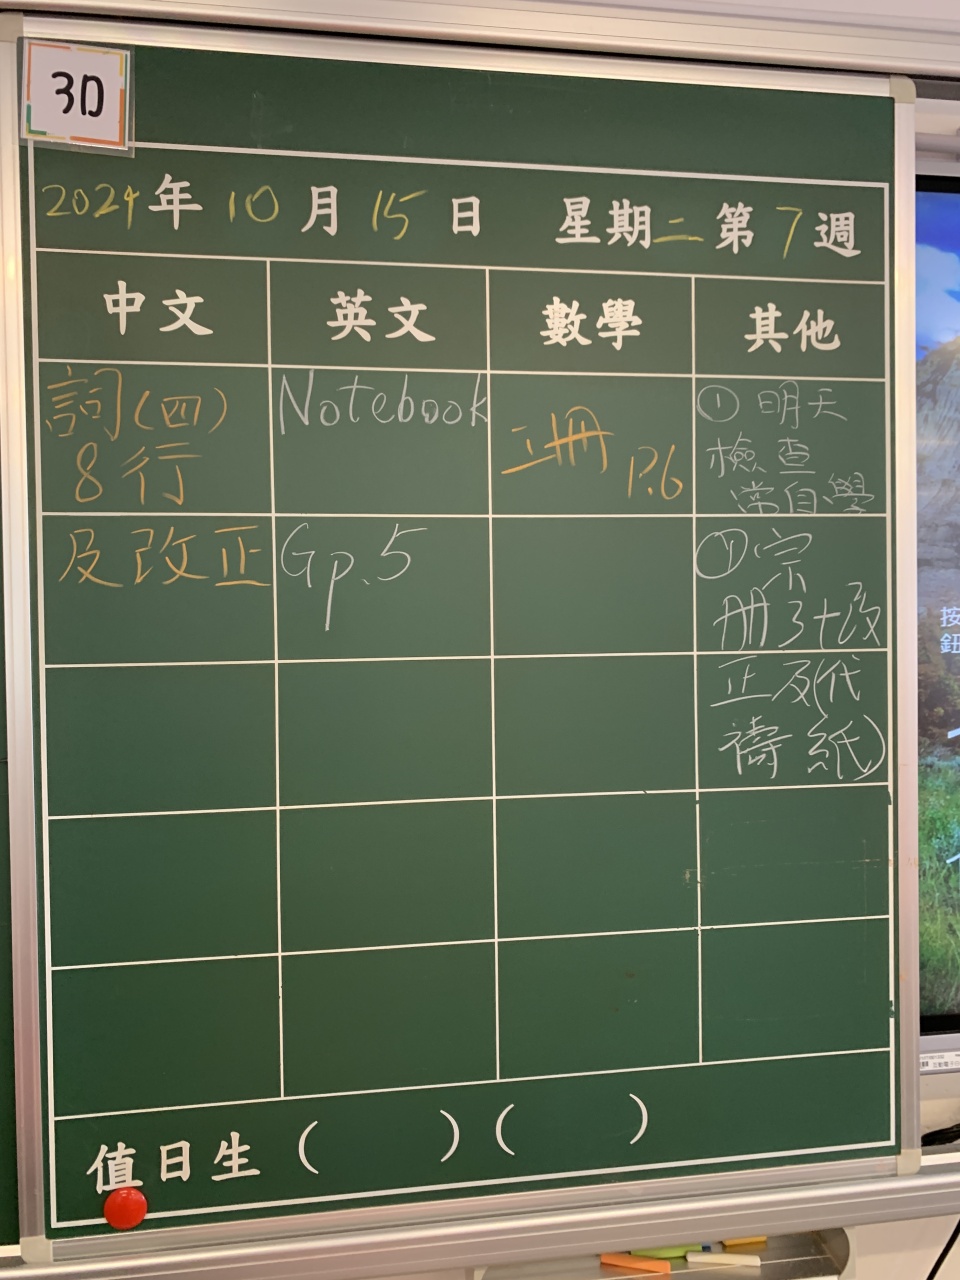 3D
2024年10月15日 星期二第7週
中文 英文 數學 其他
詞(四)
8行
及改正
Notebook
Gp.5
P.6
① 明天
檢查
常自學
宗
册3+改
正及(代
禱紙)
值日生( )( )
按
鈕